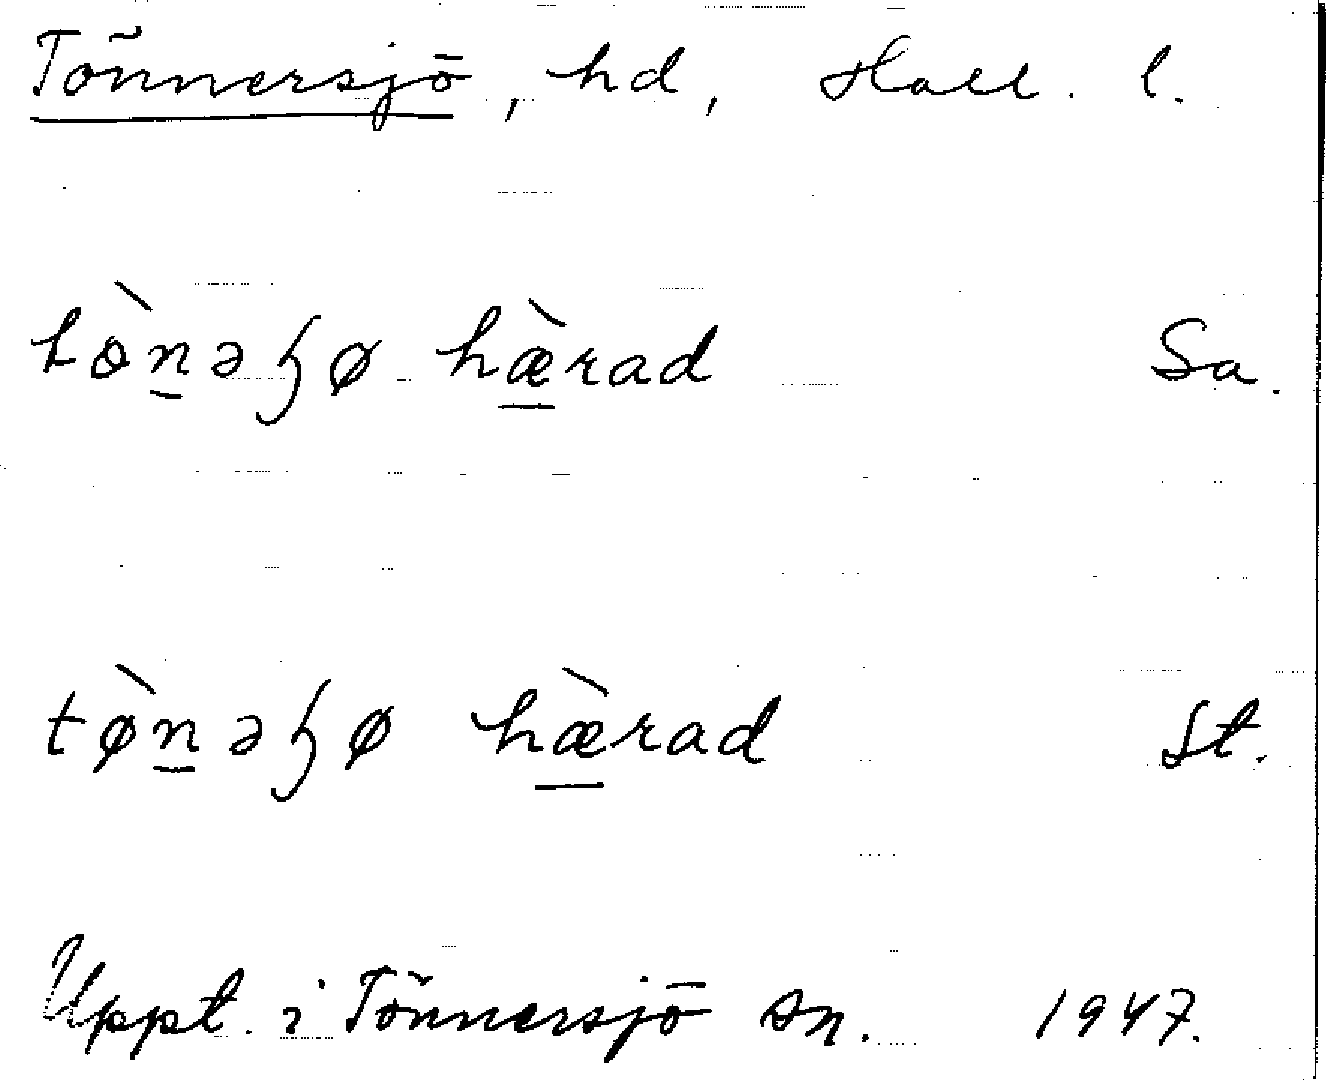 Tönnersjö, hd, Hall. l.
tɵ̀n̲əɧø hæ̲̀rad Sa.
tø̀n̲əɧø hæ̲̀rad St.
Uppt. i Tönnersjö sn. 1947.